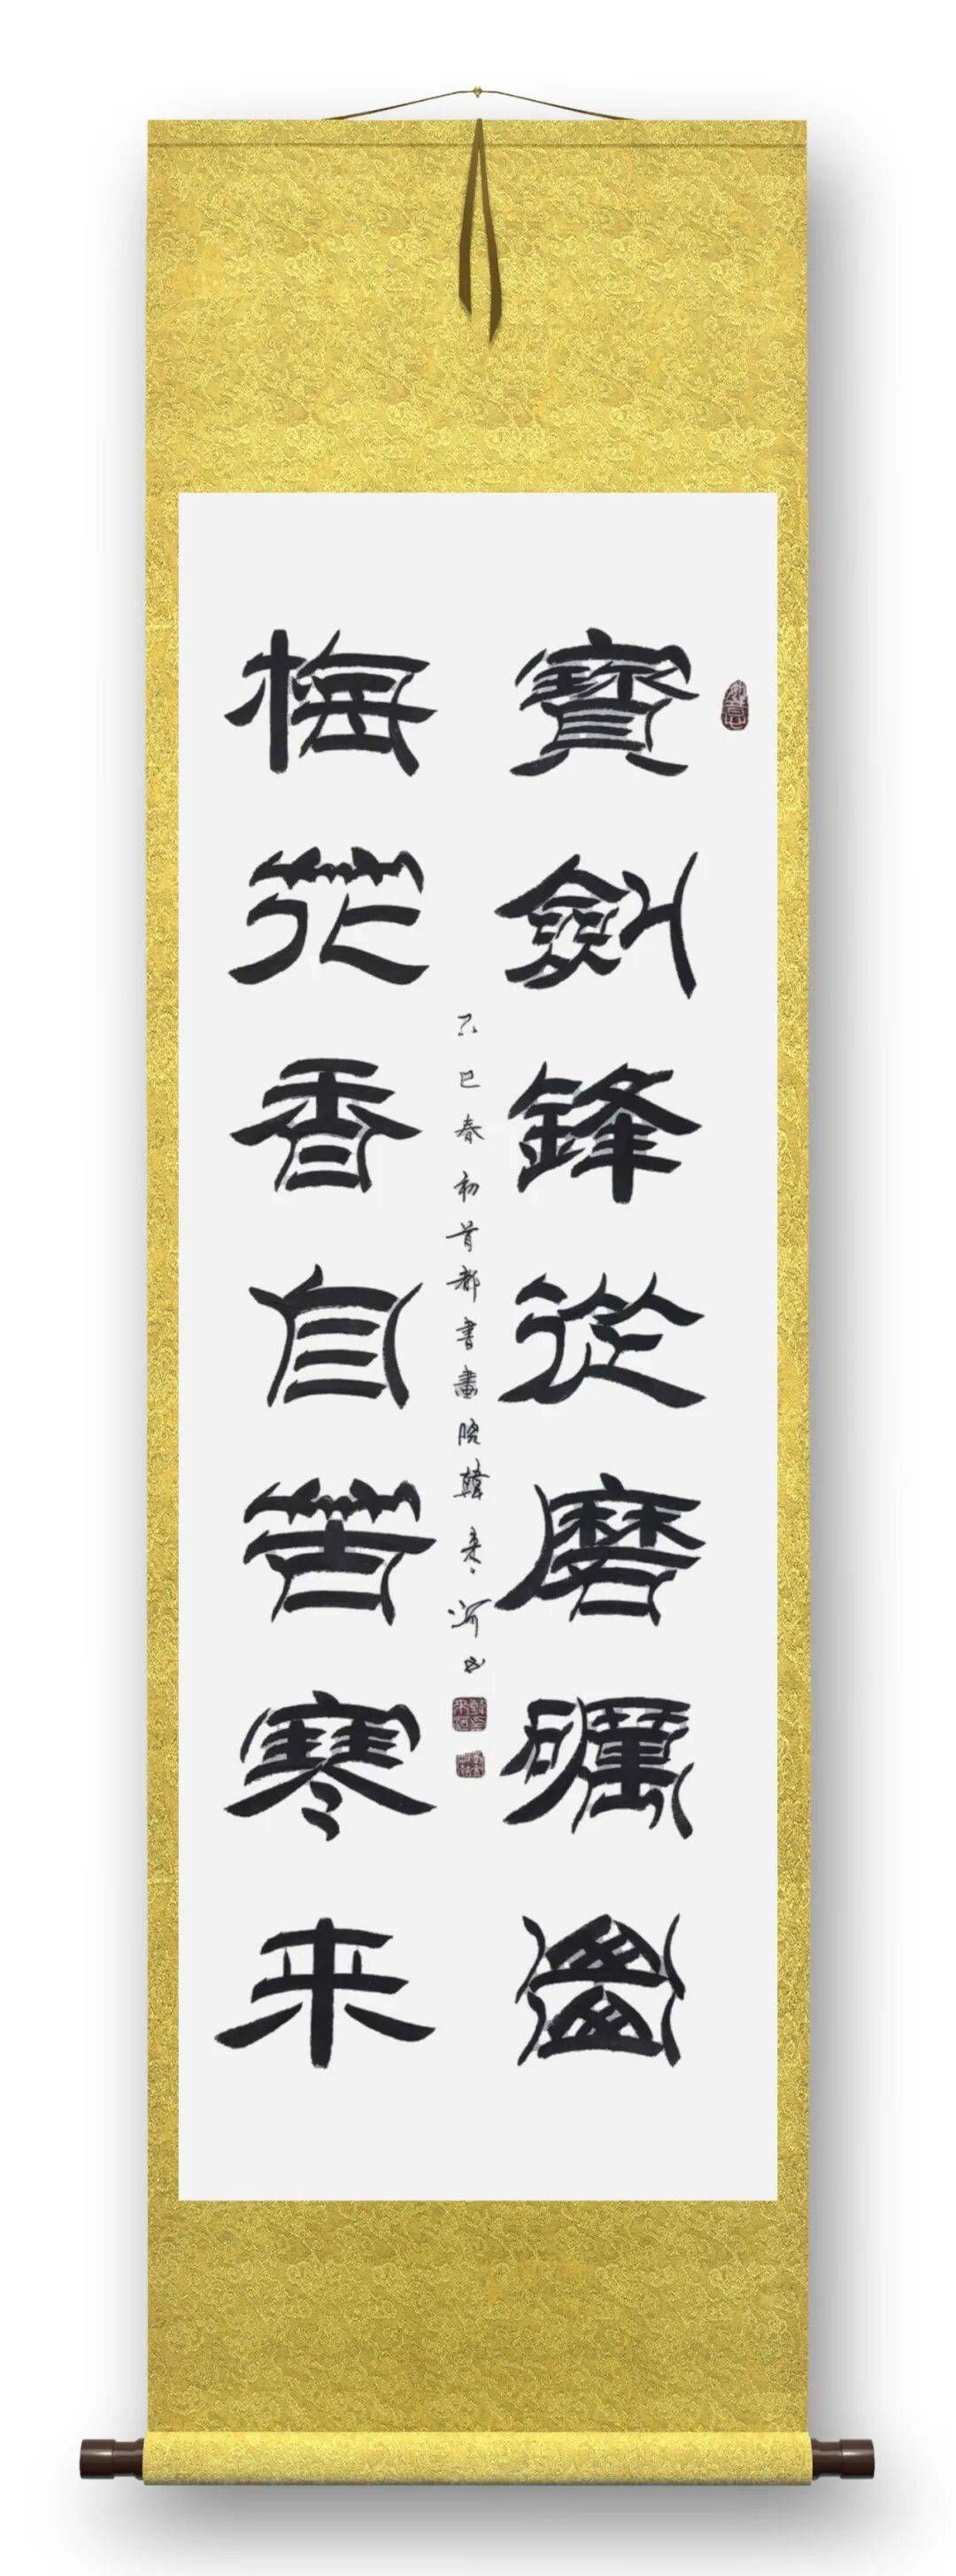 寶劍鋒從磨礪齒
梅花香自苦寒来
巳春初首都書畫院韓来河书